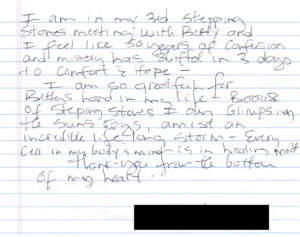 I am in my 3rd stepping
stones meeting with Betty and
I feel like 50 years of confusion
and misery has shifted in 3 days
to comfort & hope –
I am so greatful for
Bettys hand in my life – Because
of stepping stones I am Glimpsing
the suns rays, amist an
incredible life-long storm – Every
cell in my body & mind is in healing mode
Thank-you from the bottom
of my heart.